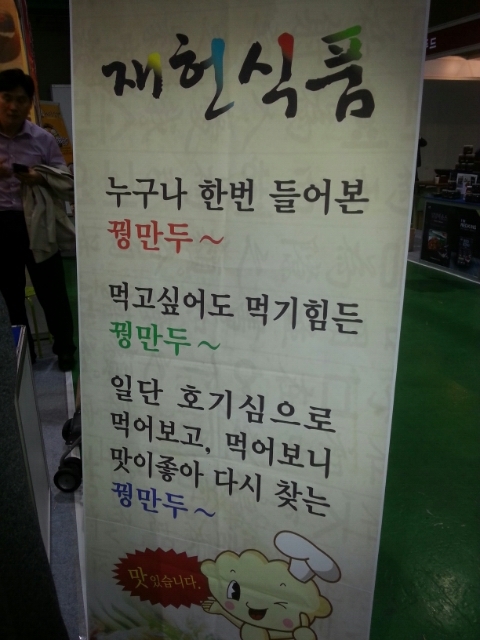 재헌식품
누구나 한번 들어본
꿩만두~
먹고싶어도 먹기힘든
꿩만두~
일단 호기심으로
먹어보고, 먹어보니
맛이좋아 다시 찾는
꿩만두~
맛있습니다.